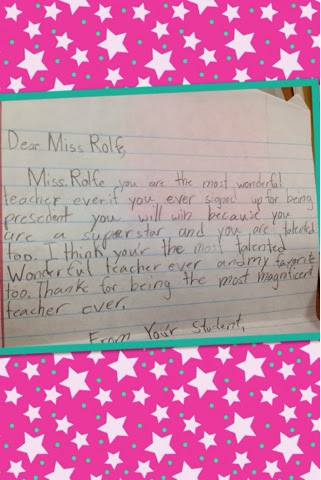 Dear Miss Rolfe,
Miss. Rolfe you are the most wonderful
teacher ever if you ever signed up for being
presedent you will win because you
are a superstar and you are talented
too. I think you'r the most talented
Wonderful teacher ever and my favorite
too. Thank for being the most magnificent
teacher ever.
From You'r Student,